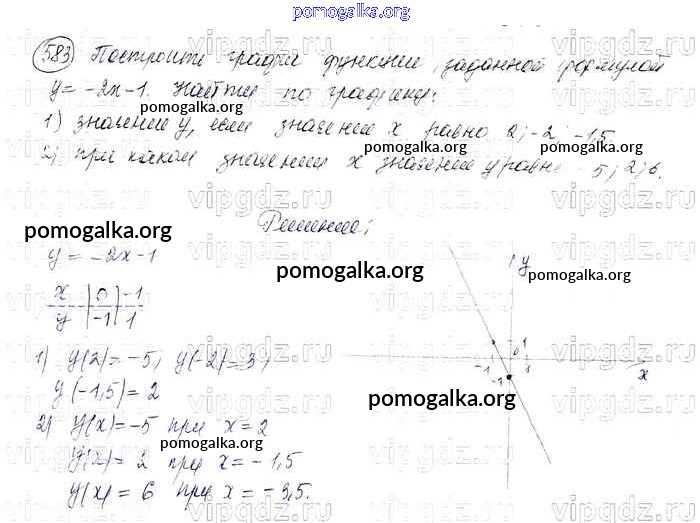 pomogalka.org
583) Построить график функции, заданной формулой
y = -2x-1. Найти по графику:
1) значение y, если значение x равно 2; -2; -1,5
2) при каком значении x значение y равно -5; 2; 6.
Решение:
y = -2x-1
x | 0 | -1
y | -1 | 1
1) y(2) = -5; y(-2) = 3;
y(-1,5) = 2
2) y(x) = -5 при x = 2
y(x) = 2 при x = -1,5
y(x) = 6 при x = -3,5.
y
1
0
-1 1
-1
x
pomogalka.org
pomogalka.org
pomogalka.org
pomogalka.org
pomogalka.org
pomogalka.org
pomogalka.org
vipgdz.ru
vipgdz.ru
vipgdz.ru
vipgdz.ru